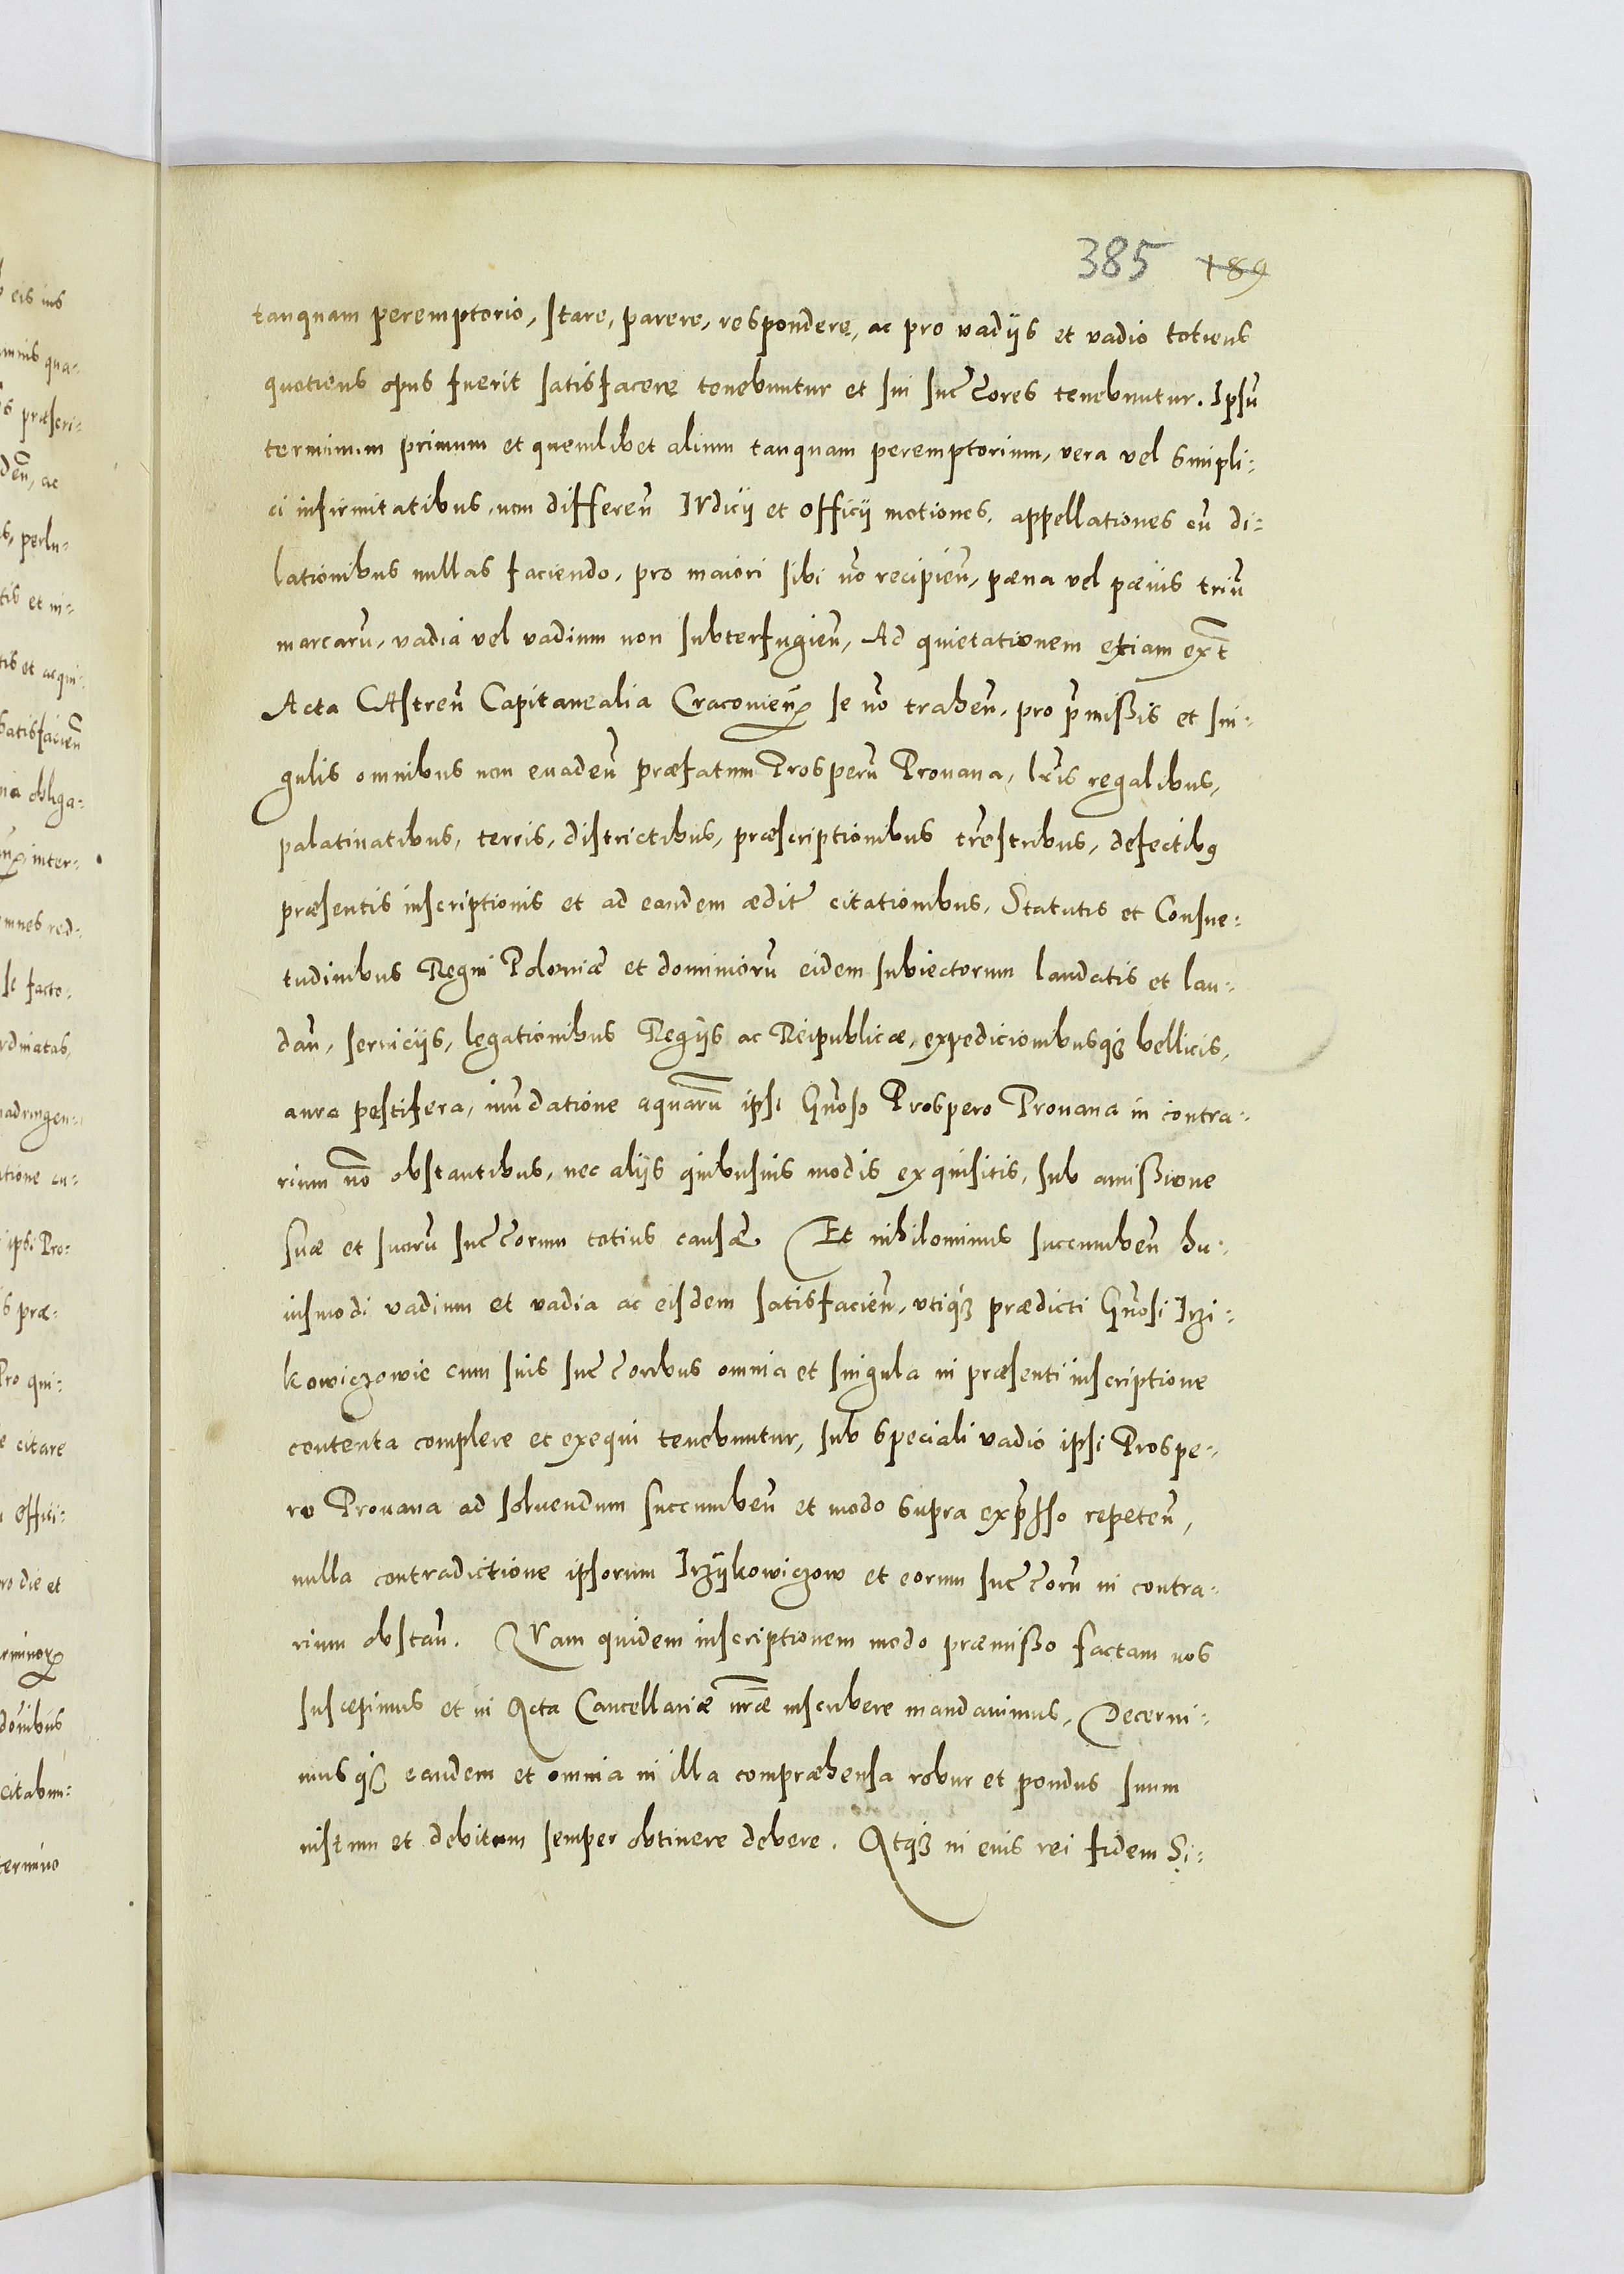 385 189
tanquam peremptorio, stare, parere, respondere, ac pro vadijs et vadio totiens
quotiens opus fuerit satisfacere tenebuntur et sui succ̃ores tenebuntur. Ipsũ
terminum primum et quemlibet alium tanquam peremptorium, vera vel simpli:
ci infirmitatibus, non differeñ IVdicij et Officij motiones, appellationes cũ di:
lationibus nullas faciendo, pro maiori sibi nõ recipieñ, pæna vel pænis triũ
marcarũ, vadia vel vadium non subterfugieñ, Ad quietationem etiam ext̃
Acta CAstreñ Capitanealia Cracovieñ se nõ traheñ, pro p̃missis et sin:
gulis omnibus non evadeñ præfatum Prosperũ Provana, lr̃is regalibus,
palatinatibus, terris, districtibus, præscriptionibus tr̃estribus, defectibꝰ
præsentis inscriptionis et ad eandem ædit̃ citationibus, Statutis et Consue:
tudinibus Regni Poloniæ et dominiorũ eidem subiectorum laudatis et lau:
dañ, serviciis, legationibus Regijs ac Reipublicæ, expedicionibusq̃ bellicis,
aura pestifera, inũdatione aquarũ ipsi Gñoso Prospero Provana in contra:
rium nõ obstantibus, nec alijs quibusvis modis exquisitis, sub amissione
suæ et suorũ succ̃orum totius causæ. Et nihilominus succumbeñ hu:
iusmodi vadium et vadia ac eisdem satisfacieñ, utiq̃ prædicti Gñosi Irzi:
kowiczowie cum suis succ̃oribus omnia et singula in præsenti inscriptione
contenta complere et exequi tenebuntur, sub speciali vadio ipsi Prospe:
ro Provana ad solvendum succumbeñ et modo supra exp̃sso repeteñ,
nulla contradictione ipsorum Irzykowiczow et eorum succ̃orũ in contra:
rium obstañ. QVam quidem inscriptionem modo præmisso factam nos
suscepimus et in Acta Cancellariæ nr̃æ inscribere mandavimus, Decerni:
musq̃ eandem et omnia in illa compræhensa robur et pondus suum
iustum et debitum semper obtinere debere. Atq̃ in cuius rei fidem Si: